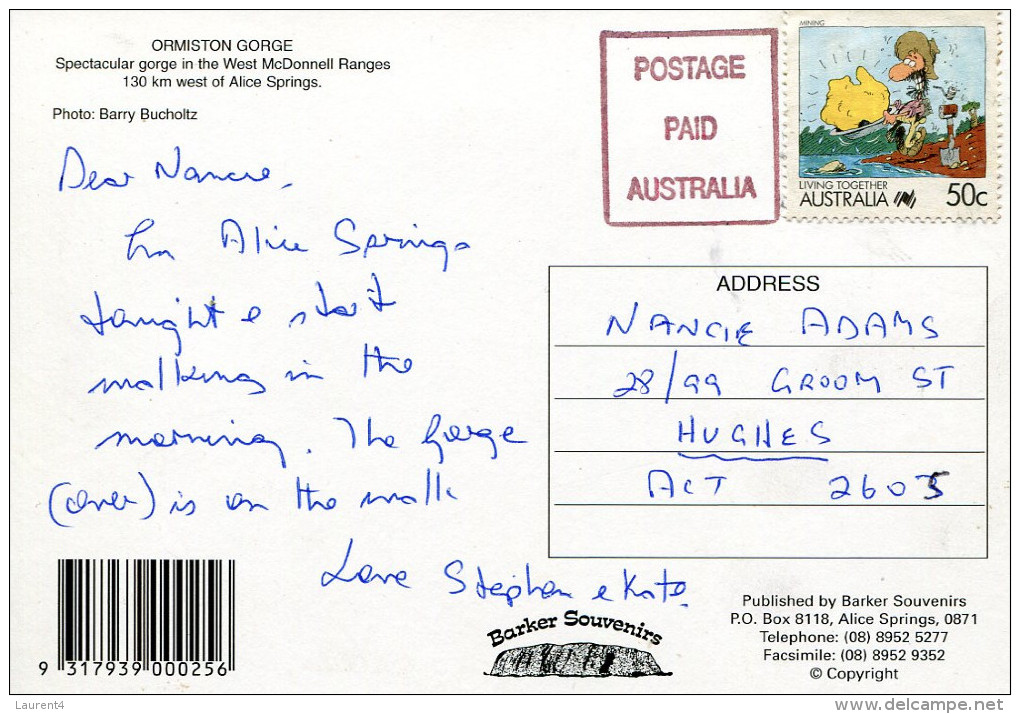 ORMISTON GORGE
Spectacular gorge in the West McDonnell Ranges
130 km west of Alice Springs.
Photo: Barry Bucholtz
Dear Nancie,
In Alice Springs
tonight & start
walking in the
morning. The Gorge
(over) is on the walk
Love Stephen & Kate.
POSTAGE
PAID
AUSTRALIA
MINING
LIVING TOGETHER
AUSTRALIA 50c
ADDRESS
NANCIE ADAMS
28/99 GROOM ST
HUGHES
ACT 2605
9 317939 000256
Barker Souvenirs
Published by Barker Souvenirs
P.O. Box 8118, Alice Springs, 0871
Telephone: (08) 8952 5277
Facsimile: (08) 8952 9352
© Copyright
Laurent4
delcampe.net